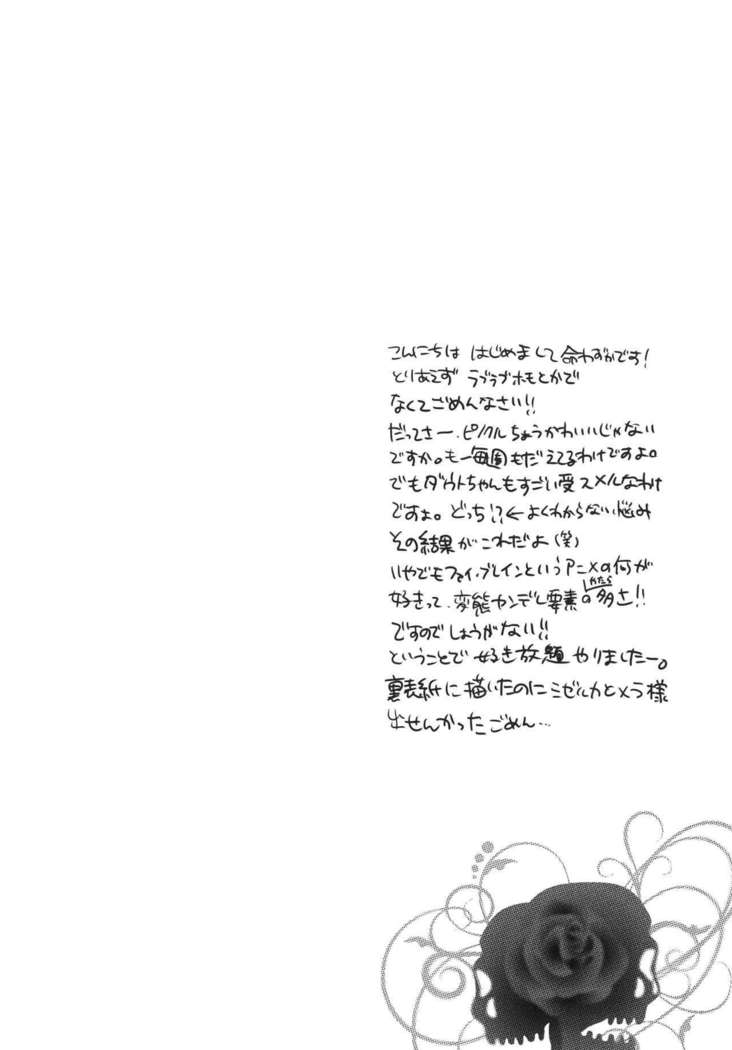 こんにちは はじめまして 命わずかです!
とりあえず ラブラブホモとかで
なくてごめんなさい!!
だってさー、ピノクルちょうかわいいじゃない
ですか。も一毎週もだえてるわけですよ。
でもダウトちゃんもすごい受スメルなわけ
ですよ。どっち!?←よくわからない悩み
その結果がこれだよ(笑)
いやでもファイ・ブレインというアニメの何が
好きって、変態ヤンデレ要素の多さ!!
ですのでしょうがない!!
ということで 好き放題やりましたー。
裏表紙に描いたのにミゼルカとメラ様
出せんかったごめん…